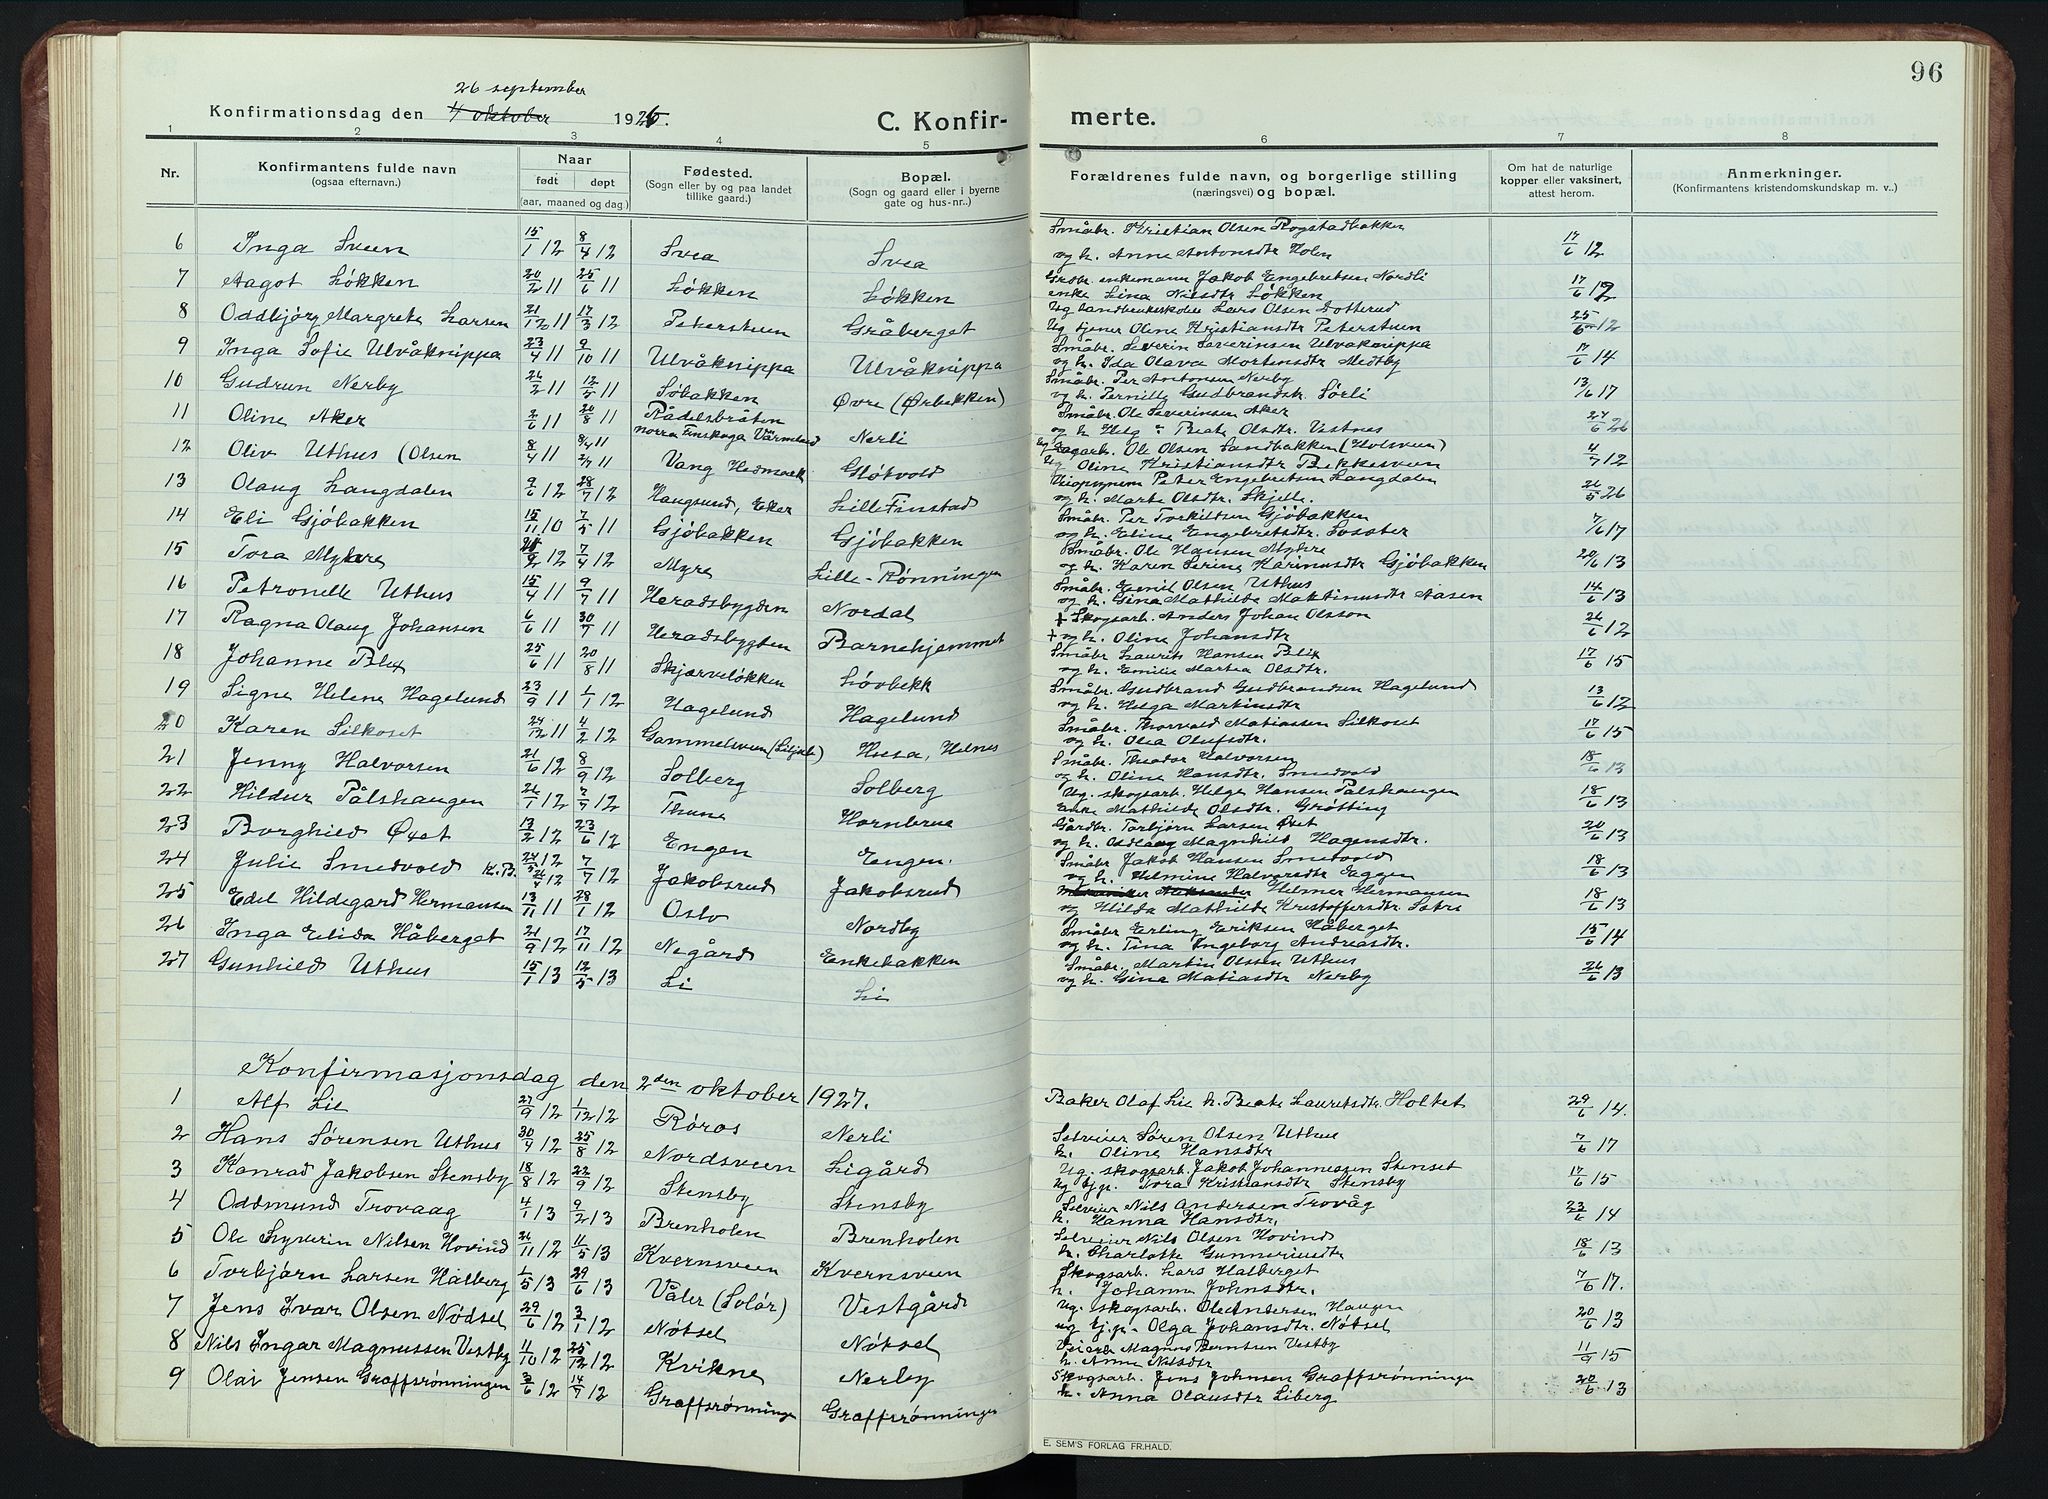 96
26 september
Konfirmationsdag den 4 oktober 1926.
C. Konfir-
merte.
1 2 3 4 5 6 7 8
Nr.
Konfirmantens fulde navn
(ogsaa efternavn.)
Naar
født døpt
(aar, maaned og dag.)
Fødested.
(Sogn eller by og paa landet
tillike gaard.)
Bopæl.
(Sogn og gaard eller i byerne
gate og hus-nr.)
Forældrenes fulde navn, og borgerlige stilling
(næringsvei) og bopæl.
Om hat de naturlige
kopper eller vaksinert,
attest herom.
Anmerkninger.
(Konfirmantens kristendomskundskap m. v.)
6 Inga Sveen 15/1 12 8/4 12 Svea Svea
Småbr. Kristian Olsen Rogstadbakken
og h. Anne Antonsdtr Holen 17/6 12
7 Aagot Løkken 20/2 11 25/6 11 Løkken Løkken
Grdbr. enkemann Jakob Engebretsen Nordli
enke Lina Nilsdtr Løkken 17/6 12
8 Oddbjørg Margrete Larsen 21/12 11 17/3 12 Peterstuen Gråberget
Ug landbrukerkolee Lars Olsen Lotterud
Ug tjener Oline Kristiansdtr Peterstuen 25/6 12
9 Inga Sofie Ulvåknippa 23/4 11 9/10 11 Ulvåknippa Ulvåknippa
Småbr. Severin Severinsen Ulvåknippa
og h. Ida Olava Mortensdtr Medtby 17/6 14
10 Gudrun Nerby 26/2 11 12/5 11 Søbakken Øvre (Ørbekken)
Småbr. Per Antonsen Nerby
og h. Pernille Gudbrandsdtr. Sørli 13/6 17
11 Oline Aker 2/6 11 20/8 11 Rådelsbråten
norra Finskoga Värmland Nerli
Småbr. Ole Severinsen Aker
og h. Helg Beate Olsdtr. Vestnes 24/6 26
12 Oliv Uthus (Olsen 8/4 11 2/7 11 Vang Hedmark Gløtvold
Ug dagarb. Ole Olsen Sandbakken (Holsveen)
Ug Oline Kristiansdtr Bekkesveen 4/7 12
13 Olaug Langdalen 9/6 12 28/7 12 Haugsund, Eker Lille Finstad
Peter Engebretsen Langdalen
og h. Marte Olsdtr. Skjelle. 26/5 26
14 Eli Gjøbakken 15/11 10 7/5 11 Gjøbakken Gjøbakken
Småbr. Per Torkildsen Gjøbakken
og h. Eline Engebretsdtr. Sosater 7/6 17
15 Tora Myhre 12 7/4 12 Myre Lille-Rønningen
Småbr. Ole Hansen Myhre
og h. Karen Serine Karinusdtr Gjøbakken 20/6 13
16 Petronelle Uthus 15/4 11 9/7 11 Heradsbygden Nordal
Småbr. Emil Olsen Uthus
og h. Gina Mathilde Maktinusdtr Aasen 14/6 13
17 Ragna Olaug Johansen 6/6 11 30/7 11 Heradsbygden Barnehjemmet
+ Skogsarb. Anders Johan Olsson
+ og h. Oline Johansdtr 26/6 12
18 Johanne Blix 25/6 11 20/8 11 Skjærveløkken Løvbekk
Småbr. Laurits Hansen Blix
og h. Emilie Martea Olsdtr. 17/6 15
19 Signe Helene Hagelund 23/9 11 1/1 12 Hagelund Hagelund
Småbr. Gudbrand Gudbrandsen Hagelund
og h. Helga Martinsdtr 13/6 12
20 Karen Silkoset 24/12 11 4/2 12 Gammelsveen Hiesa, Helnes
Småbr. Thorvald Matiassen Silkoset
og h. Olea Olufsdtr. 17/6 15
21 Jenny Halvorsen 21/6 12 8/9 12 Solberg Solberg
Småbr. Theodor Halvorsen
og h. Oline Hansdtr. Smedvold 18/6 13
22 Hildur Pålshaugen 26/1 12 7/7 12 Thune Hornberue
Ug. skogsarb. Helge Hansen Pålshaugen
Enke Mathilde Olsdtr. Grøtting 18/6 13
23 Borghild Øvet 13/2 12 23/6 12 Engen Engen.
Gårdbr. Torbjørn Larsen Øvet
og h. Oddlaug Magnhild Hagensdtr. 20/6 13
24 Julie Smedvold K.B. 26/4 12 7/7 12 Jakobsrud Jakobsrud
Småbr Jakob Hansen Smedvold
og h. Helmine Halvorsdtr Eggen 18/6 13
25 Edel Hildegard Hermansen 13/11 11 28/1 12 Oslo Nordby
Helmer Hermansen
og Hilda Mathilde Kristoffersdtr Sætre 18/6 13
26 Inga Elida Håberget 21/9 12 17/11 12 Negård Enkebakken
Småbr Erling Eriksen Håberget
og h. Tina Ingeborg Andreasdtr. 15/6 14
27 Gunhild Uthus 15/1 13 12/5 13 Li Li
Småbr. Martin Olssen Uthus
og h. Gina Matiasdtr Nerby 26/6 13
Konfirmasjonsdag den 2den oktober 1927.
1 Alf Lie 27/9 12 1/12 12 Røros Nerli
Baker Olaf Lie h. Beate Lauritsdtr. Holtet 29/6 14.
2 Hans Sørensen Uthus 30/4 12 25/8 12 Nordsveen Ligård
Selveier Søren Olsen Uthus
h. Oline Hansdtr 7/6 17
3 Konrad Jakobsen Stensby 18/8 12 22/9 12 Stensby Stensby
Ug. skogsarb. Jakob Johannessen Stenset
Ug tj.p. Tora Kristiansdtr Stensby 17/6 15
4 Oddmund Trovaag 4/1 13 9/2 13 Brenholen Brenholen
Selveier Nils Andersen Trovåg
h. Hanna Hansdtr. 23/6 14
5 Ole Syverin Nilsen Hovind 26/11 12 11/5 13 Kvernsveen Kvernsveen
Selveier Nils Olsen Hovind
h. Charlotte Gunneriusdtr 18/6 13
6 Torbjørn Larsen Halberg 1/5 13 29/6 13 Våler (Solør) Vestgård
Skogsarb. Lars Halberget
h. Johanne Johnsdtr. 7/6 17.
7 Jens Ivar Olsen Nødsel 29/6 12 3/1 12 Nøtsel Nøtsel
Ug. skogsarb. Ole Andersen Haugen
ug tj.p. Olga Johansdtr. Nøtsel 20/6 13
8 Nils Ingar Magnussen Vestby 11/10 12 25/12 12 Kvikne Nerby
Veiarb Magnus Berntsen Vestby
h. Anne Nilsdtr 11/9 15
9 Olai Jensen Graffsrønningen 3/6 12 14/7 12 Graffsrønningen Graffsrønningen
Skogsarb. Jens Johnsen Graffsrønningen
h. Anna Olausdtr Liberg 20/6 13
E. SEM'S FORLAG FR.HALD.